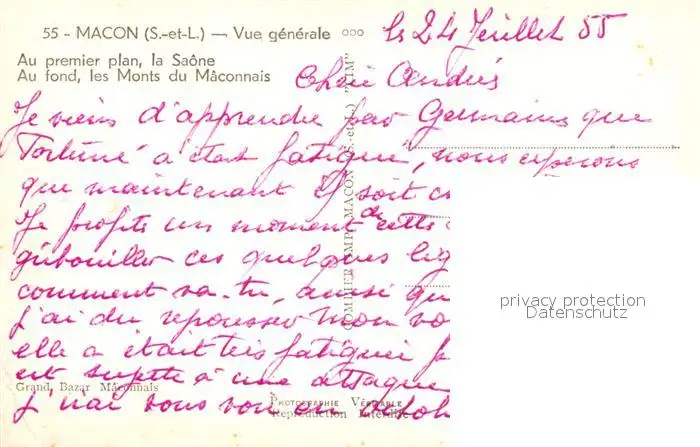 55 - MACON (S.-et-L.) — Vue générale
le 24 Juillet 55
Au premier plan, la Saône
Au fond, les Monts du Mâconnais
Chère Andrée
Je viens d'apprendre par Germaine que
Fortuné a était fatigué, nous esperons
que maintenant il soit
Je profite un moment de cette
gribouiller ces quelques
comment va-tu, ainsi
j'ai du repousser mon
elle a était très fatiguée
est sujette à une attaque
Grand Bazar Mâconnais
j'irai vous voir en
COMBIER IMP. MACON (S.-et-L.) "CIM"
PHOTOGRAPHIE VÉRITABLE
Reproduction Interdite
privacy protection
Datenschutz